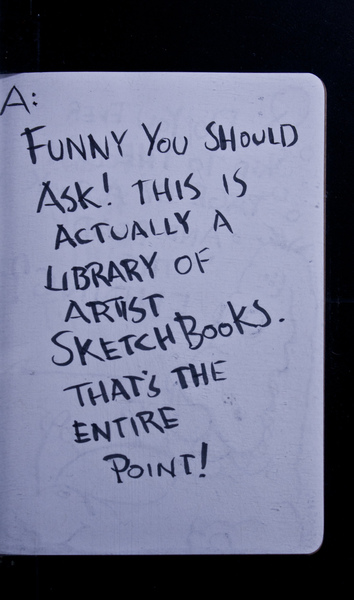 A:
FUNNY YOU SHOULD
ASK! THIS IS
ACTUALLY A
LIBRARY OF
ARTIST
SKETCHBOOKS.
THAT'S THE
ENTIRE
POINT!